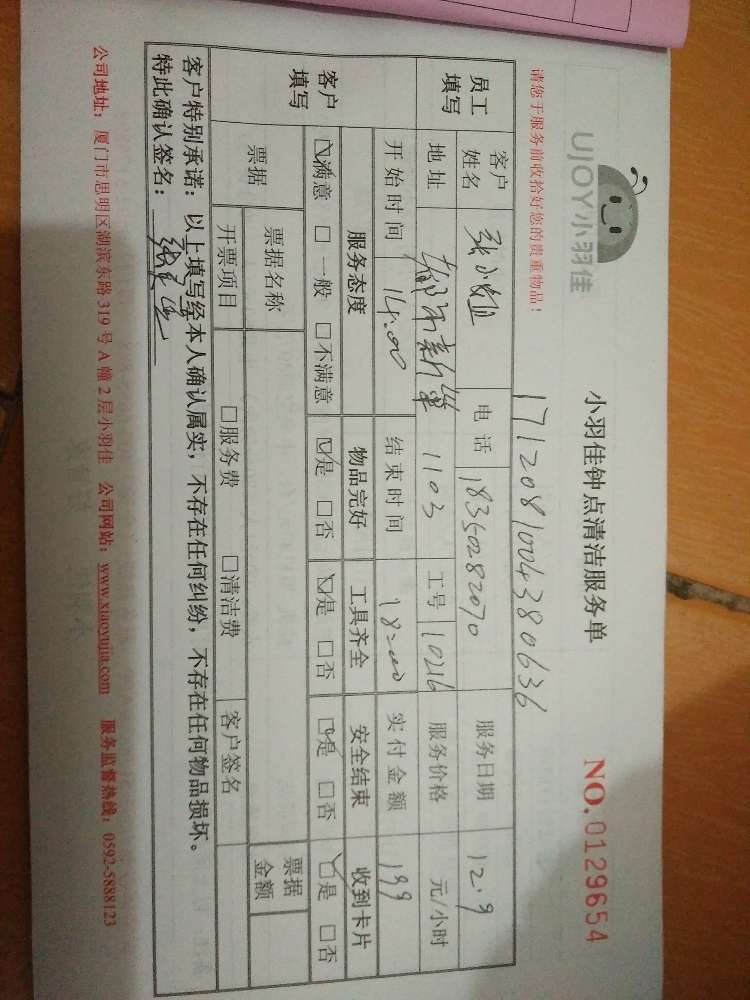 UJOY小羽佳
小羽佳钟点清洁服务单
NO.0129654
请您于服务前收拾好您的贵重物品！
1712081004380636
员工填写 客户姓名 张小 电话 18350282070 服务日期 12.9
地址 新 1103 工号 10216 服务价格 元/小时
开始时间 14:00 结束时间 18:00 实付金额 199
客户填写 服务态度 物品完好 工具齐全 安全结束 收到卡片
☑满意 □一般 □不满意 ☑是 □否 ☑是 □否 ☑是 □否 ☑是 □否
票据 票据名称 票据金额
开票项目 □服务费 □清洁费 客户签名
客户特别承诺：以上填写经本人确认属实，不存在任何纠纷，不存在任何物品损坏。
特此确认签名：
公司地址：厦门市思明区湖滨东路319号A幢2层小羽佳 公司网站：www.xiaoyujia.com 服务监督热线：0592-5888123